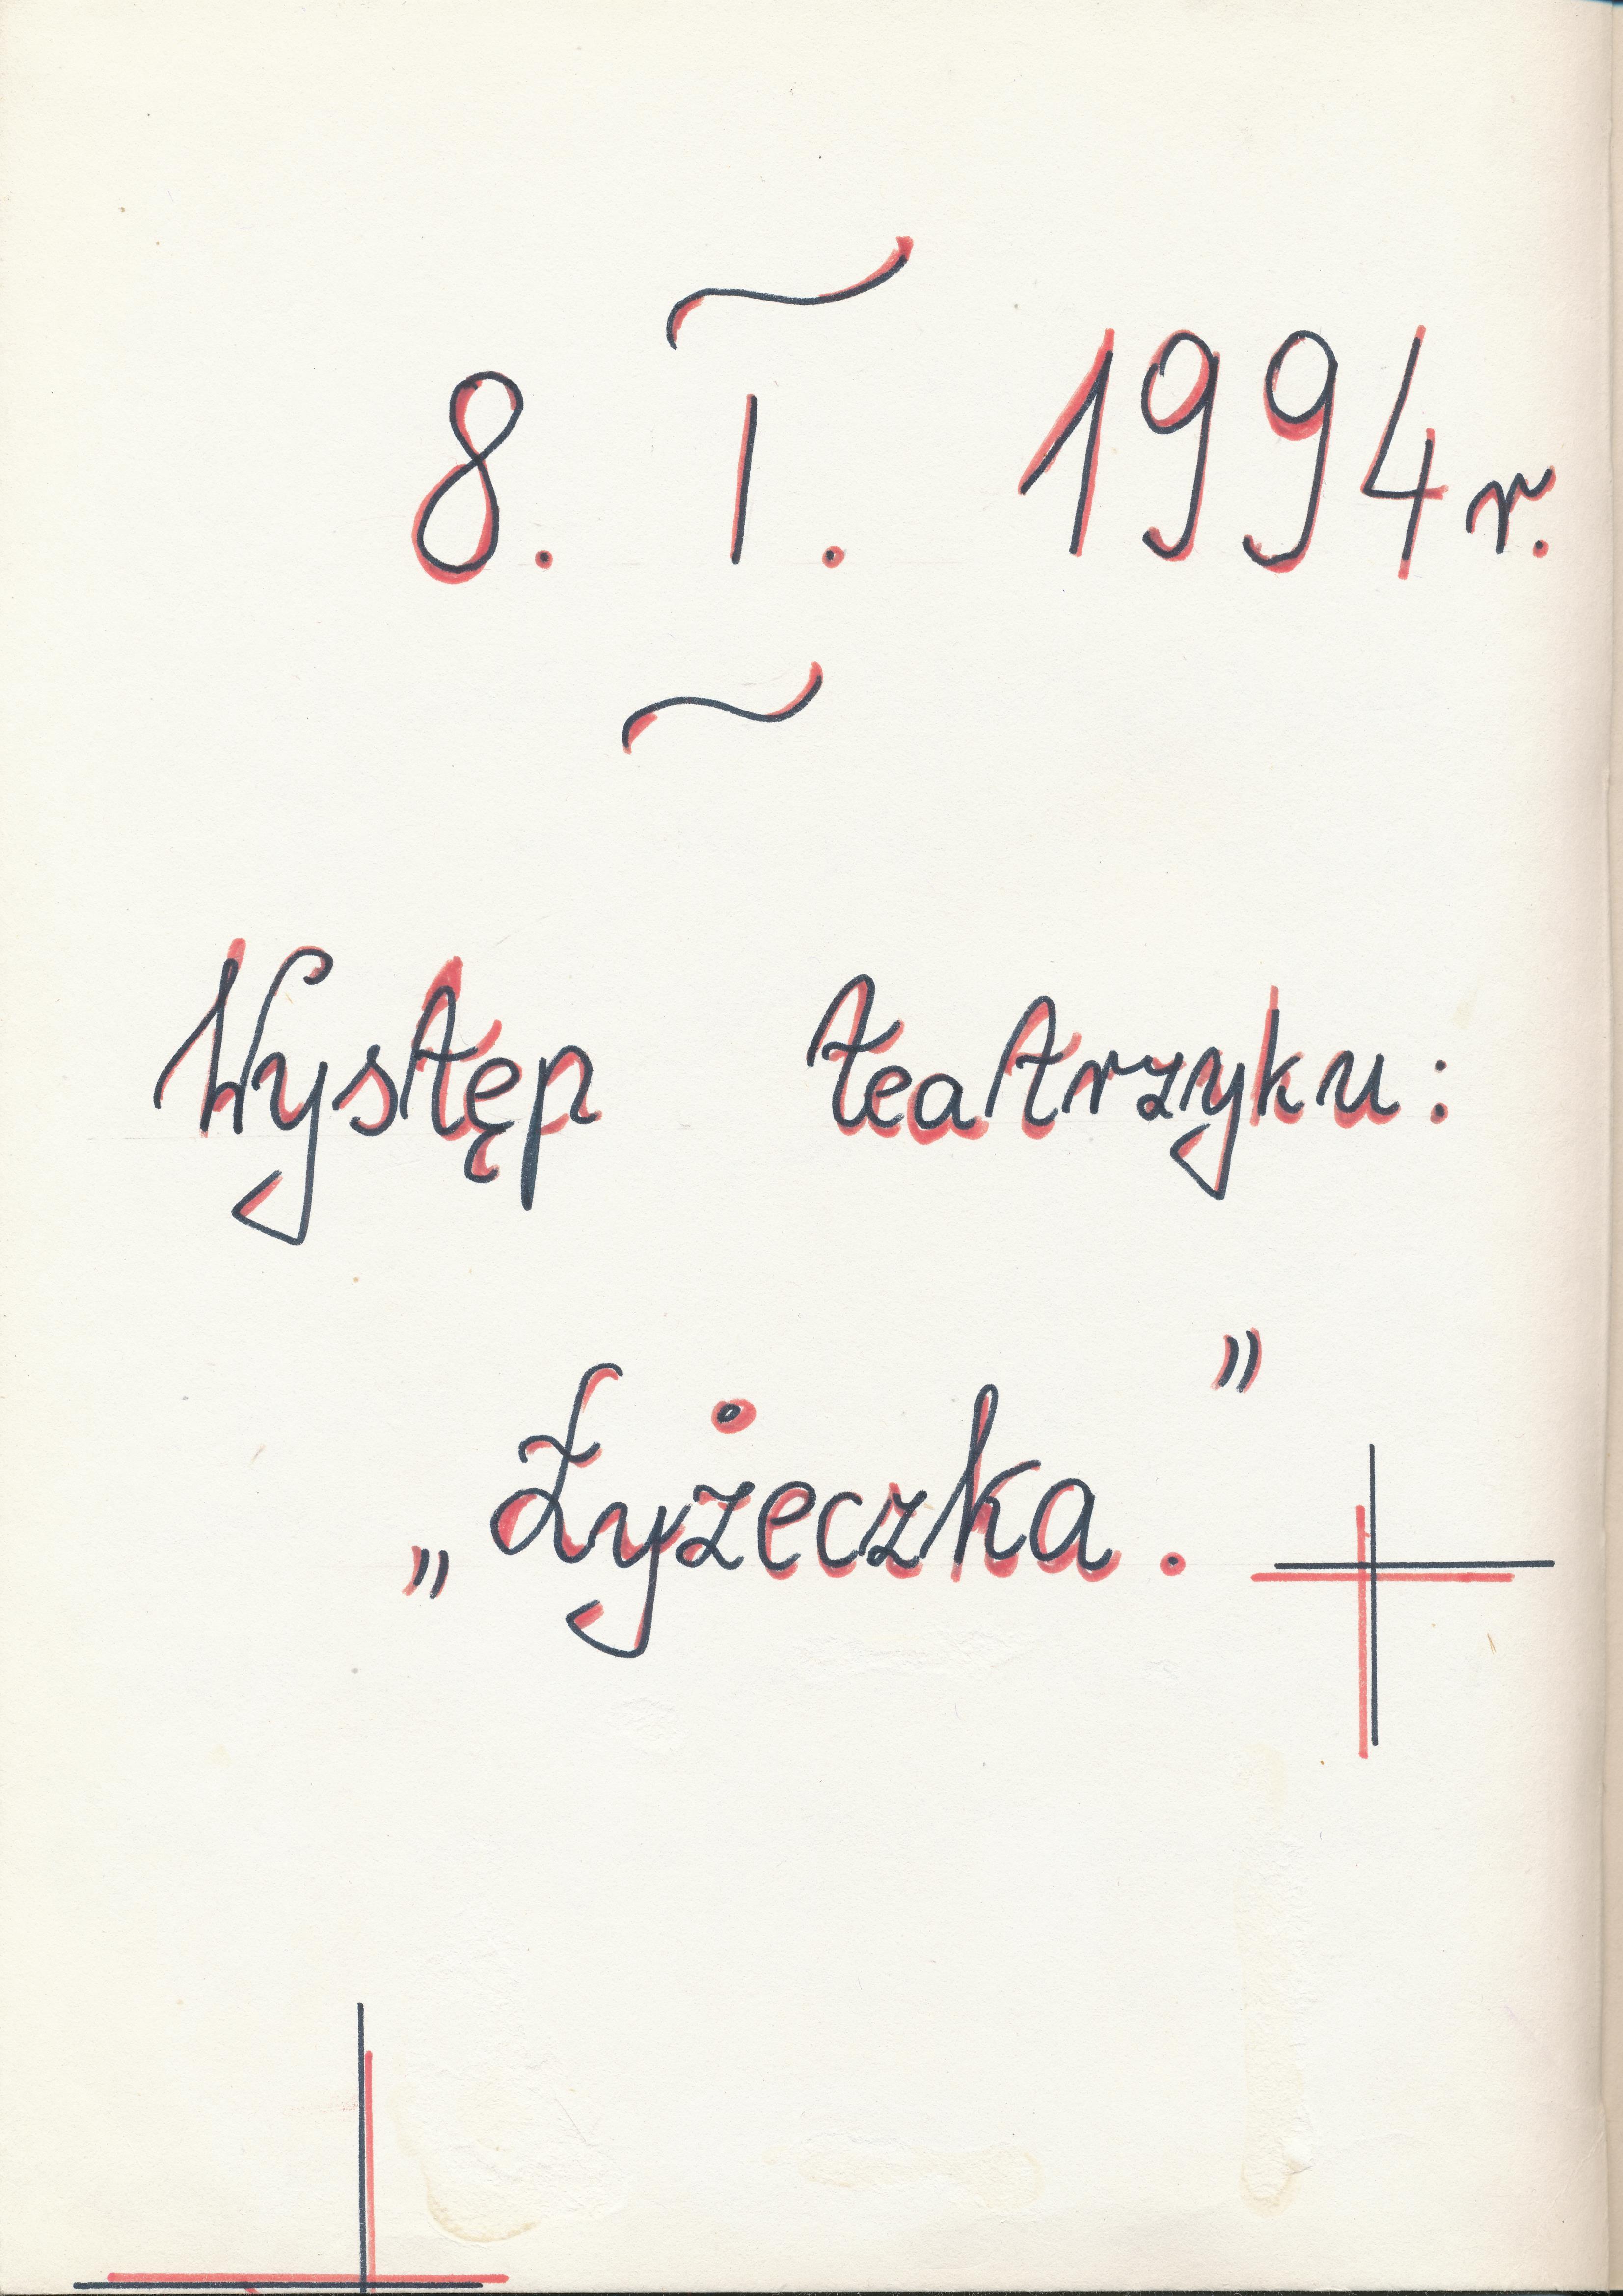 8. I. 1994 r.
Występ teatrzyku:
„Łyżeczka."